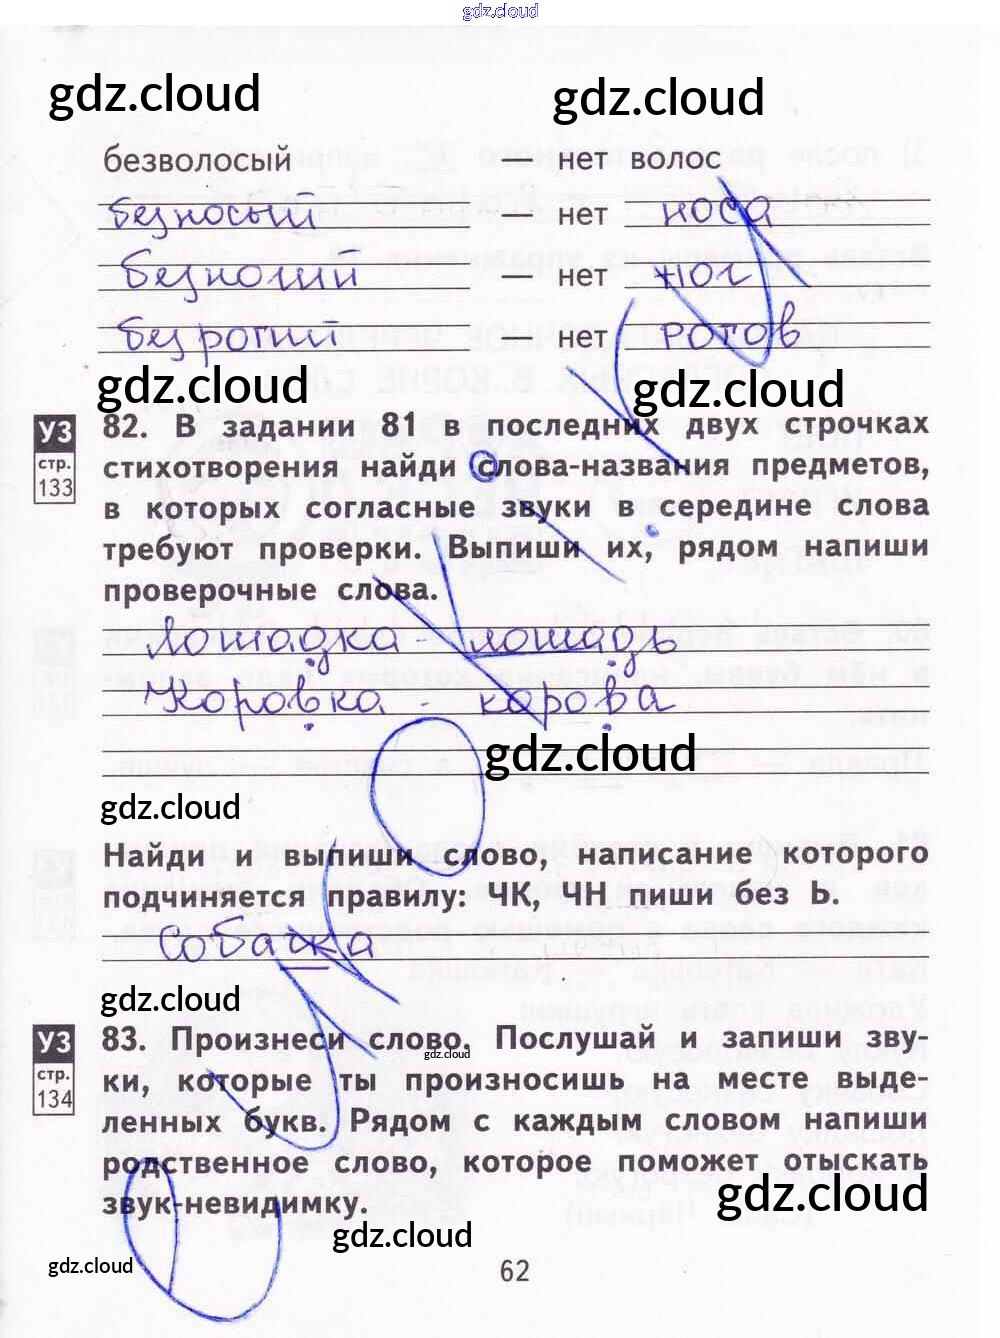 gdz.cloud
gdz.cloud
gdz.cloud
безволосый — нет волос
безносый — нет носа
безногий — нет ног
безрогий нет рогов
gdz.cloud
gdz.cloud
УЗ
стр.
133
82. В задании 81 в последних двух строчках
стихотворения найди слова-названия предметов,
в которых согласные звуки в середине слова
требуют проверки. Выпиши их, рядом напиши
проверочные слова.
Лошадка лошадь
Коровка - корова
gdz.cloud
gdz.cloud
Найди и выпиши слово, написание которого
подчиняется правилу: ЧК, ЧН пиши без Ь.
Собачка
gdz.cloud
УЗ
стр.
134
83. Произнеси слово. Послушай и запиши зву-
gdz.cloud
ки, которые ты произносишь на месте выде-
ленных букв. Рядом с каждым словом напиши
родственное слово, которое поможет отыскать
звук-невидимку.
gdz.cloud
gdz.cloud
gdz.cloud
62